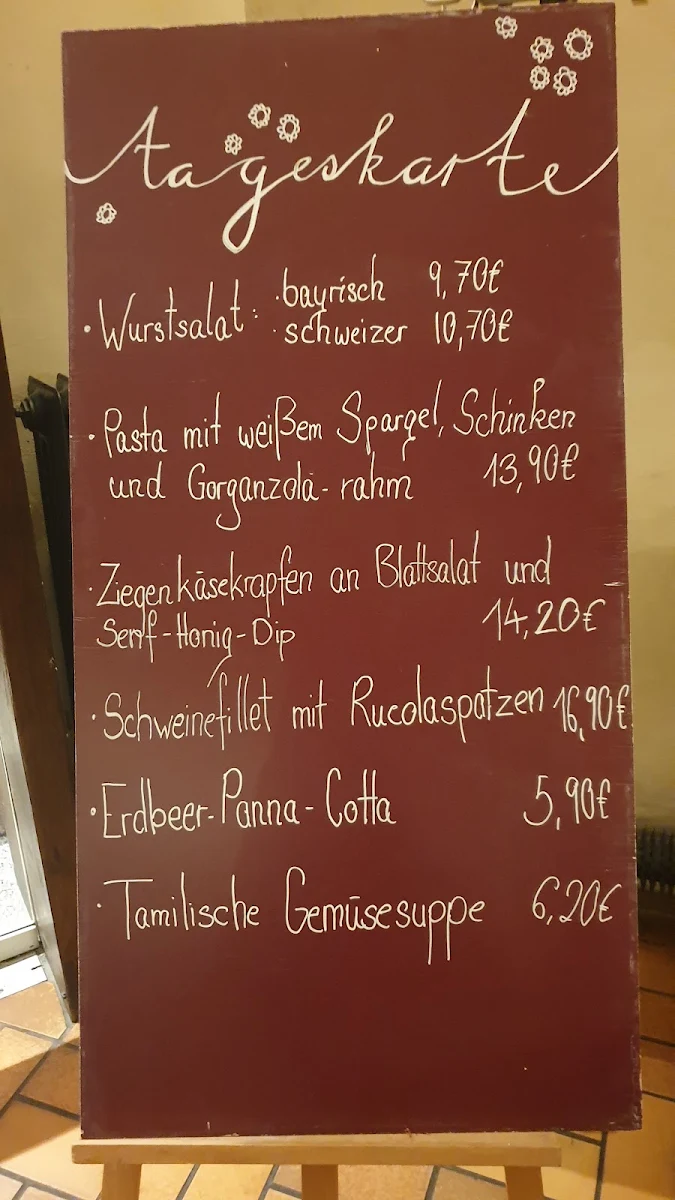 tageskarte
· Wurstsalat: · bayrisch 9,70€
· schweizer 10,70€
· Pasta mit weißem Spargel, Schinken
und Gorganzola-rahm 13,90€
· Ziegenkäsekrapfen an Blattsalat und
Senf-Honig-Dip 14,20€
· Schweinefillet mit Rucolaspatzen 16,90€
· Erdbeer-Panna-Cotta 5,90€
· Tamilische Gemüsesuppe 6,20€